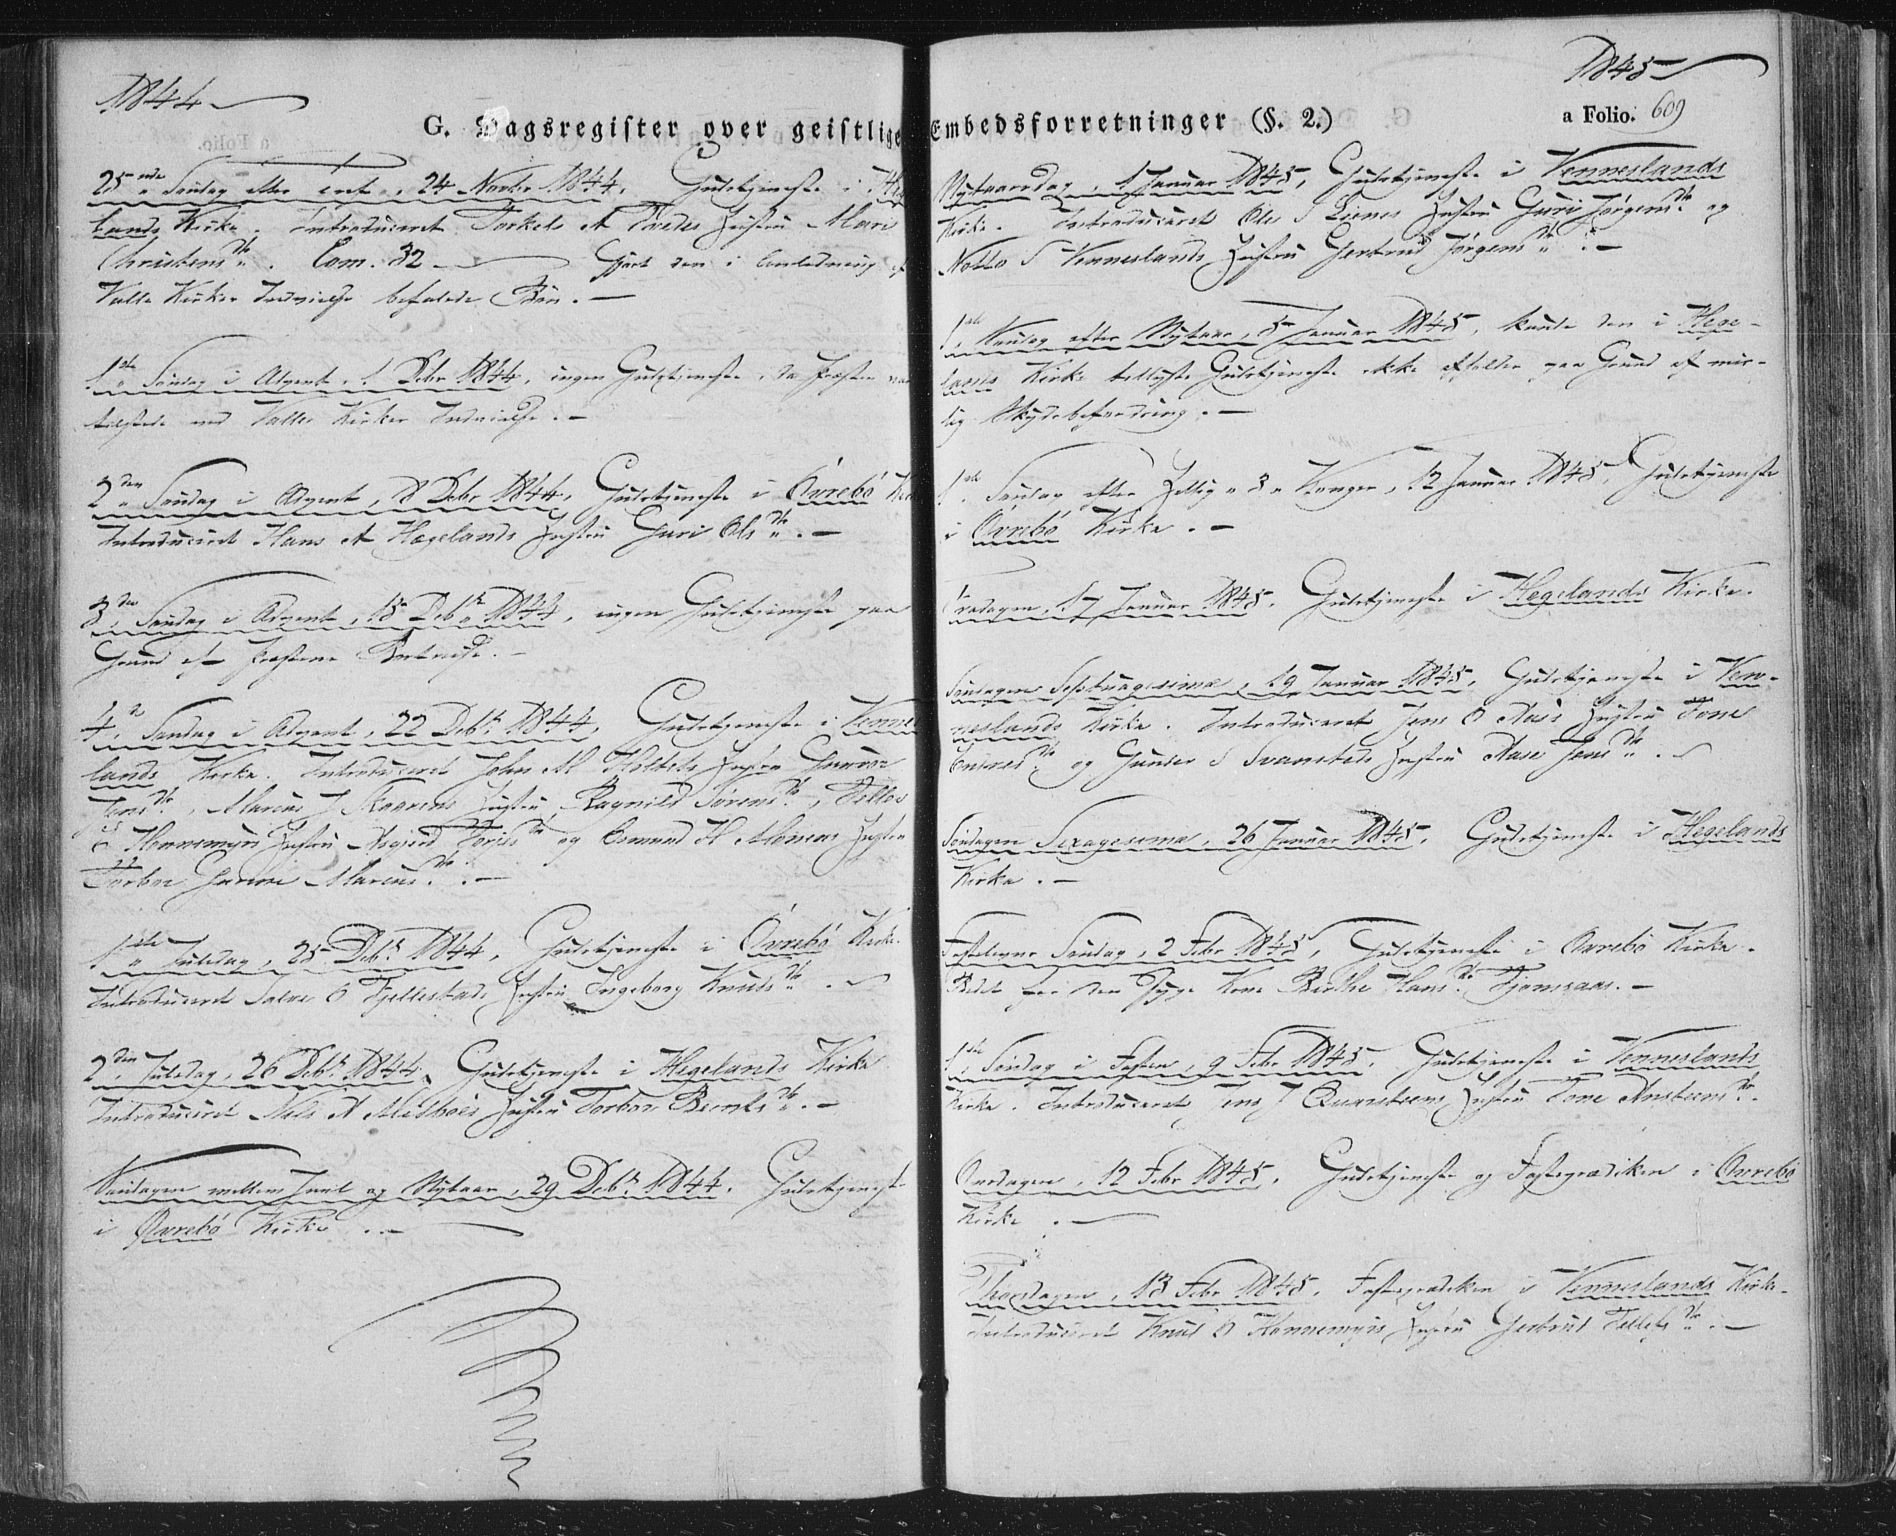 1844
G. Dagsregister over geistlige
25nde Søndag efter Tref., 24 Novbr 1844. Gudstjeneste i Hege
lands Kirke. Introduceret Torkels A Tvedes Hustru Mari
Christensdtr. Com. 32 — Gjort den i Anledning af
Valle Kirkes Indvielse befalede Bøn. —
1ste Søndag i Advent, 1 Debr 1844, ingen Gudstjeneste, da Præsten var
tilstede ved Valle Kirkes Indvielse. —
2den Søndag i Advent, 8 Debr 1844, Gudstjeneste i Øvrebö Kirke
Introduceret Hans A Hægelands Hustru Guri Olsdtr. —
3die Søndag i Advent, 15 Debr 1844, ingen Gudstjeneste paa
Grund af Præstens
4de Søndag i Advent, 22 Debr 1844, Gudstjeneste i Vennes
lands Kirke. Introduceret John M Holtets Hustru Gunvor
Jensdtr, Marcus J Skaarens Hustru Ragnild Sörensdtr, Tellev
O Honnemyrs Hustru Asgjerd og Osmund H Hustru
Torbor Marcusdtr. —
1ste Juledag, 25 Debr 1844, Gudstjeneste i Øvrebö Kirke.
Introduceret Salve O Fjellestads Hustru Ingeborg Knudsdtr. —
2den Juledag, 26 Debr 1844, Gudstjeneste i Hegelands Kirke
Introduceret Nels A Hustru Torbor Berntsdtr. —
Søndagen mellem Juul og Nytaar, 29 Debr 1844. Gudstjeneste
i Øvrebö Kirke. —
1845
Embedsforretninger (§. 2.)
a Folio. 609
Nytaarsdag, 1 Januar 1845, Gudstjeneste i Venneslands
Kirke. Introduceret Ols S Hustru Guri Jørgensdtr og
S Venneslands Hustru Gertrud Jørgensdtr. —
1ste Søndag efter Nytaar, 5 Januar 1845, kunde den i Hege-
lands Kirke tillyste Gudstjeneste ikke afholdes paa Grund af
Skydsbefordring. —
1ste Søndag efter Hellig 3 Konger, 12 Januar 1845, Gudstjeneste
i Øvrebö Kirke. —
Fredagen, 17 Januar 1845, Gudstjeneste i Hegelands Kirke.
Søndagen Septuagesima, 19 Januar 1845, Gudstjeneste i Ven-
neslands Kirke. Introduceret Jens O Hustru Tone
og Gunder S Svanstads Hustru Aase Jensdtr. —
Søndagen Sexagesima, 26 Januar 1845, Gudstjeneste i Hegelands
Kirke. —
Fastelavns Søndag, 2 Febr 1845, Gudstjeneste i Øvrebö Kirke.
Bedet for den syge Kone Birthe Hansdtr Fjomsaas. —
1ste Søndag i Fasten, 9 Febr 1845, Gudstjeneste i Venneslands
Kirke. Introduceret Jens J Qvarsteens Hustru Tone Anstensdtr.
Onsdagen, 12 Febr 1845, Gudstjeneste og Fasteprædiken i Øvrebö
Kirke. —
Thorsdagen, 13 Febr 1845, Fasteprædiken i Venneslands Kirke.
Introduceret Knud O Honnemyrs Hustru Gertrud Tellefsdtr. —